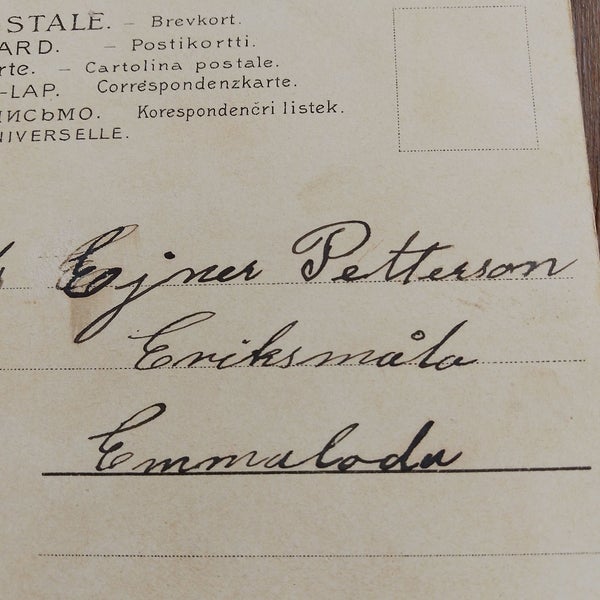 STALE. – Brevkort.
ARD. – Postikortti.
rte. – Cartolina postale.
-LAP. Correspondenzkarte.
ИСЬМО. Korespondenčri listek.
NIVERSELLE.
Ejner Petterson
Eriksmåla
Emmaboda